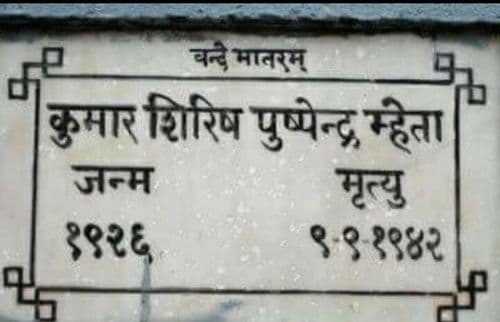 वन्दे मातरम्
कुमार शिरिष पुष्पेन्द्र म्हेता
जन्म मृत्यु
१९२६ ९-९-१९४२